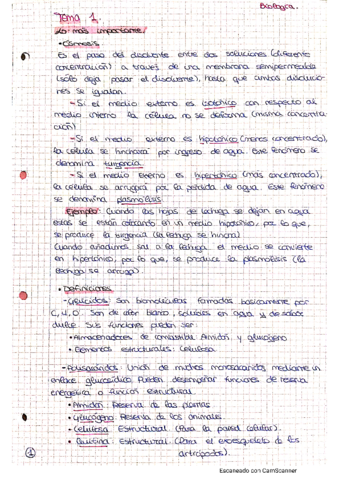 Biología.
Tema 1.
Lo más importante.
• Ósmosis
Es el paso del disolvente entre dos soluciones (diferente
concentración) a través de una membrana semipermeable
(sólo deja pasar el disolvente), hasta que ambas disolucio-
nes se igualan.
- Si el medio externo es isotónico con respecto al
medio interno la célula no se deforma (misma concentra-
ción)
- Si el medio externo es hipotónico (menos concentrado),
la célula se hinchará por ingreso de agua. Este fenómeno se
denomina turgencia.
- Si el medio externo es hipertónico (más concentrado),
la célula se arrugará por la pérdida de agua. Este fenómeno
se denomina plasmólisis
Ejemplo: Cuando las hojas de lechuga se dejan en agua
estas se están colocando en un medio hipotónico, por lo que,
se produce la turgencia (la lechuga se hincha)
Cuando añadimos sal a la lechuga el medio se convierte
en hipertónico, por lo que, se produce la plasmólisis (la
lechuga se arruga).
• Definiciones
- Glúcidos: Son biomoléculas formadas básicamente por
C, H, O. Son de color blanco, solubles en agua y de sabor
dulce. Sus funciones pueden ser:
• Almacenadores de combustible: Almidón y glucógeno
• Elementos estructurales: Celulosa
- Polisacáridos: Unión de muchos monosacáridos mediante un
enlace glucosídico. Pueden desempeñar funciones de reserva
energética o función estructural.
• Almidón: Reserva de las plantas
• Glucógeno: Reserva de los animales
• Celulosa: Estructural (Para la pared celular).
• Quitina: Estructural (Para el exoesqueleto de los
artrópodos).
1
Escaneado con CamScanner